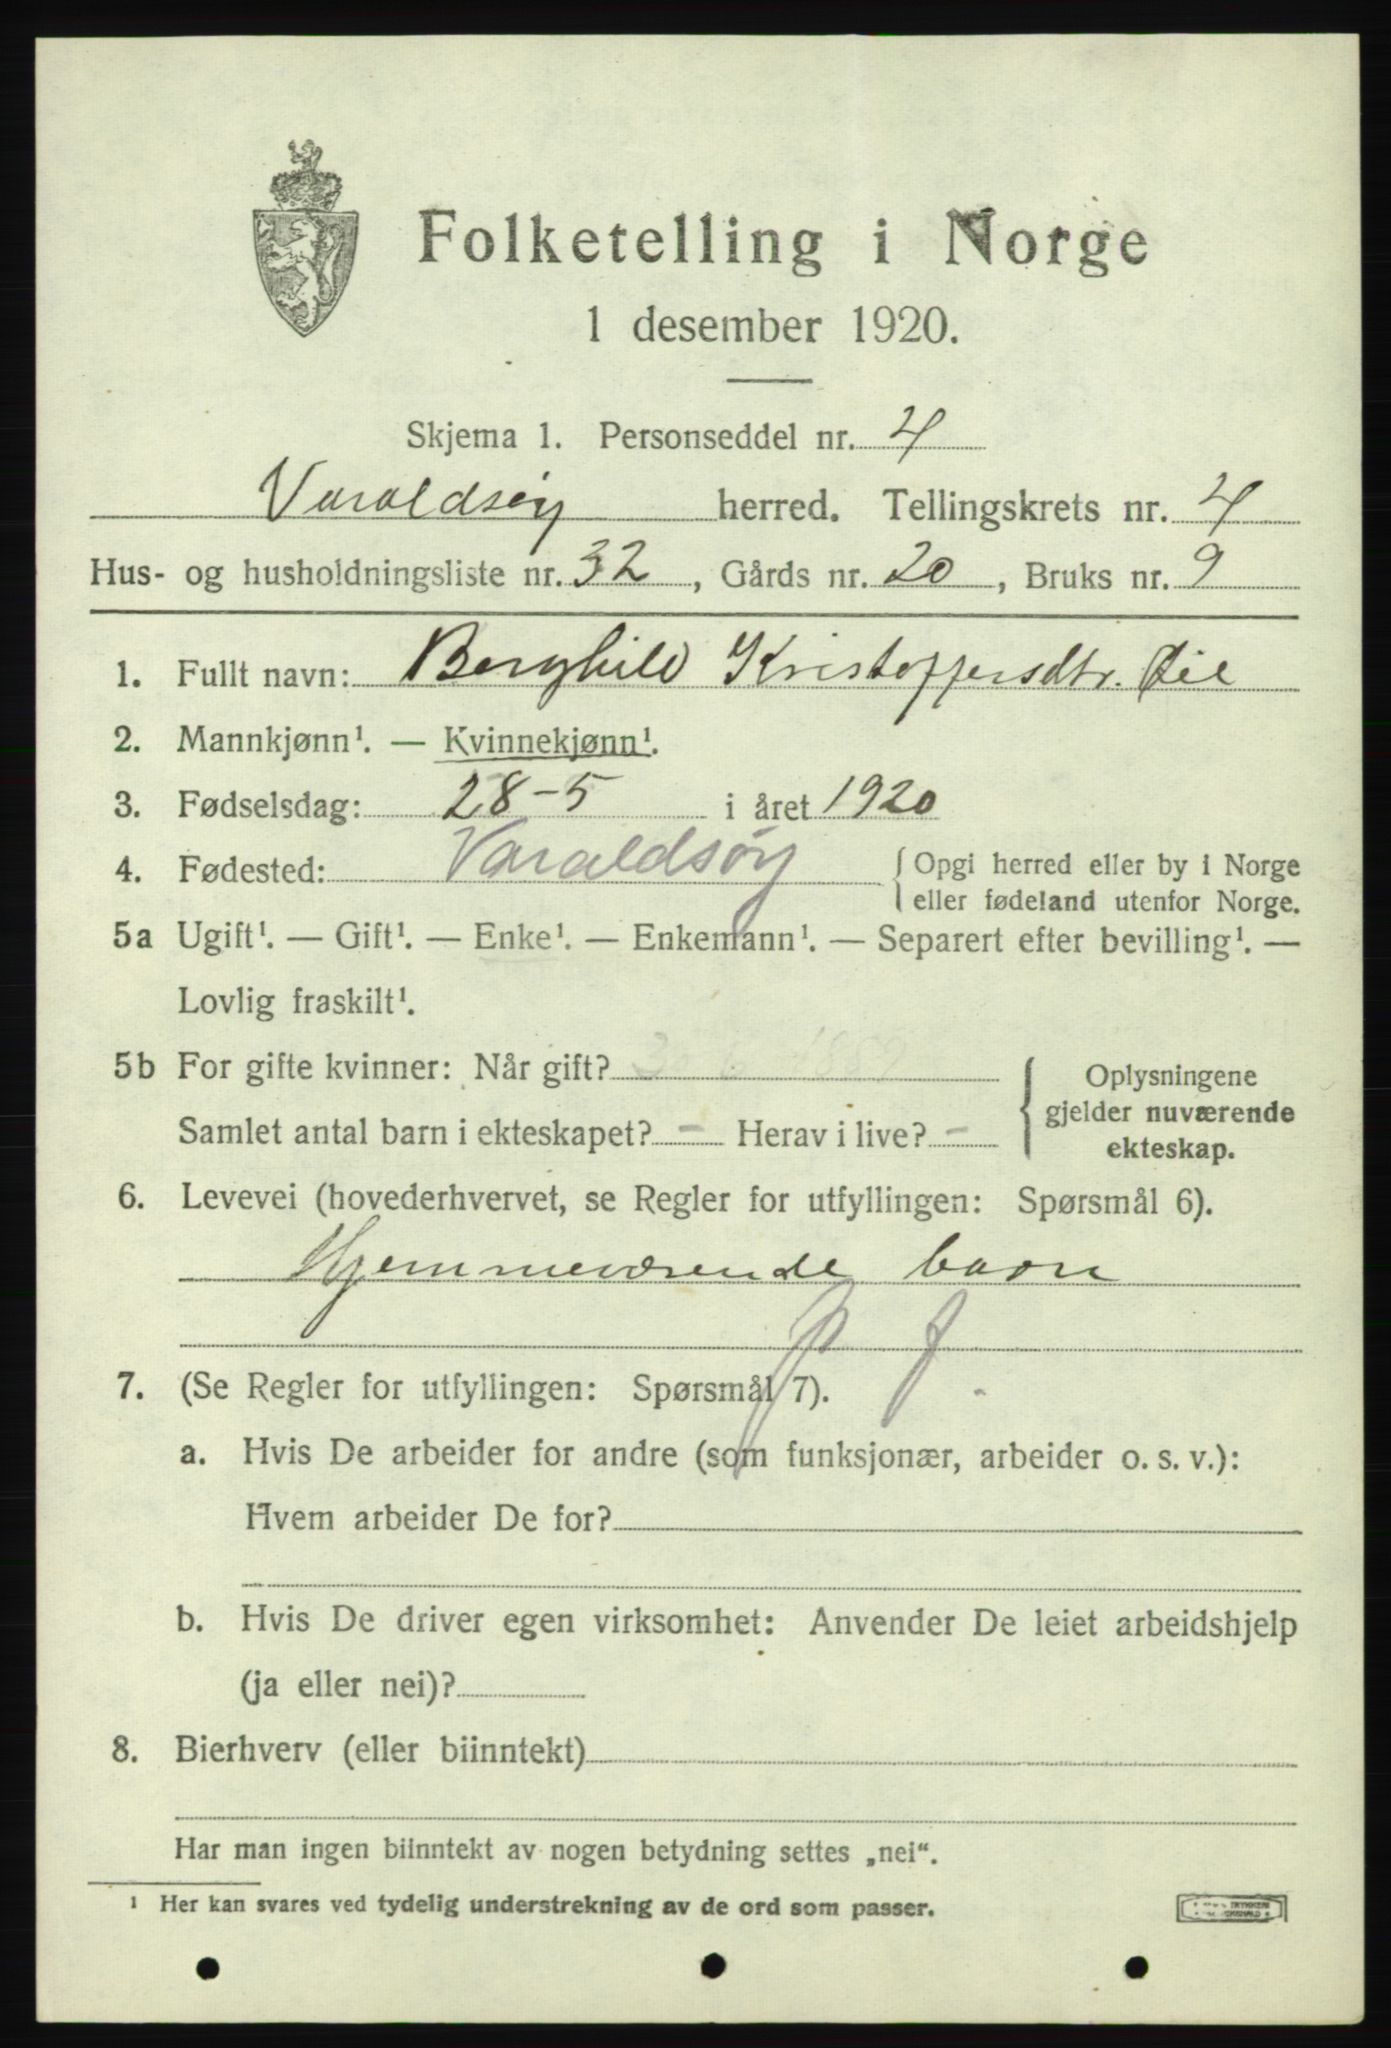 Folketelling i Norge
1 desember 1920.
Skjema 1. Personseddel nr. 4
Varaldsøy herred. Tellingskrets nr. 4
Hus- og husholdningsliste nr. 32, Gårds nr. 20, Bruks nr. 9
1. Fullt navn: Borghild Kristoffersdtr.
2. Mannkjønn¹. — Kvinnekjønn¹.
3. Fødselsdag: 28-5 i året 1920
4. Fødested: Varaldsøy { Opgi herred eller by i Norge
eller fødeland utenfor Norge.
5a Ugift¹. — Gift¹. — Enke¹. — Enkemann¹. — Separert efter bevilling¹. —
Lovlig fraskilt¹.
5b For gifte kvinner: Når gift?
Samlet antal barn i ekteskapet? - Herav i live? -
{ Oplysningene
gjelder nuværende
ekteskap.
6. Levevei (hovederhvervet, se Regler for utfyllingen: Spørsmål 6).
Hjemmeværende barn
7. (Se Regler for utfyllingen: Spørsmål 7).
a. Hvis De arbeider for andre (som funksjonær, arbeider o. s. v.):
Hvem arbeider De for?
b. Hvis De driver egen virksomhet: Anvender De leiet arbeidshjelp
(ja eller nei)?
8. Bierhverv (eller biinntekt)
Har man ingen biinntekt av nogen betydning settes „nei“.
¹ Her kan svares ved tydelig understrekning av de ord som passer.